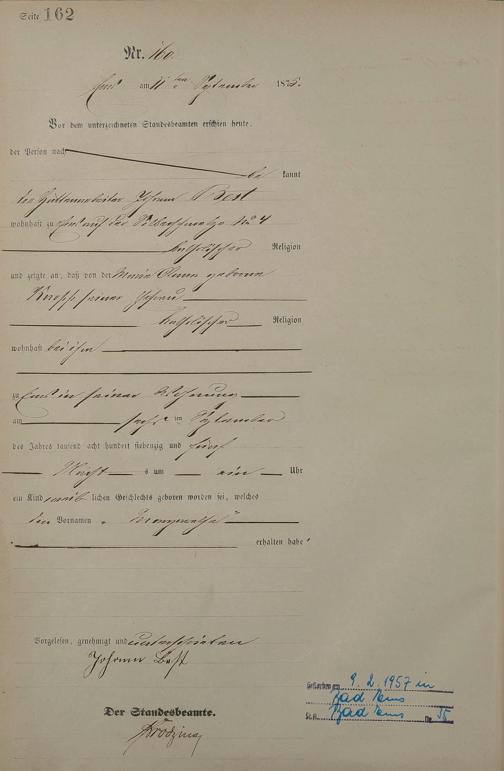 Seite 162
Nr. 160.
Ems am 11ten September 1875.
Vor dem unterzeichneten Standesbeamten erschien heute,
der Person nach
be kannt
der Hüttenarbeiter Johann Best
wohnhaft zu Ems auf der No 4
katholischer Religion
und zeigte an, daß von der Maria Anna geborne
Knopp seiner Ehefrau
katholischer Religion
wohnhaft bei ihm
zu Ems in seiner Wohnung
am sechsten September
des Jahres tausend acht hundert siebenzig und fünf
Nachts um ein Uhr
ein Kind weib lichen Geschlechts geboren worden sei, welches
den Vornamen
erhalten habe
Vorgelesen, genehmigt und unterschrieben
Johann Best
Der Standesbeamte.
Gestorben am 9.2.1957 in
Bad Ems
St.A. Bad Ems Nr. 35